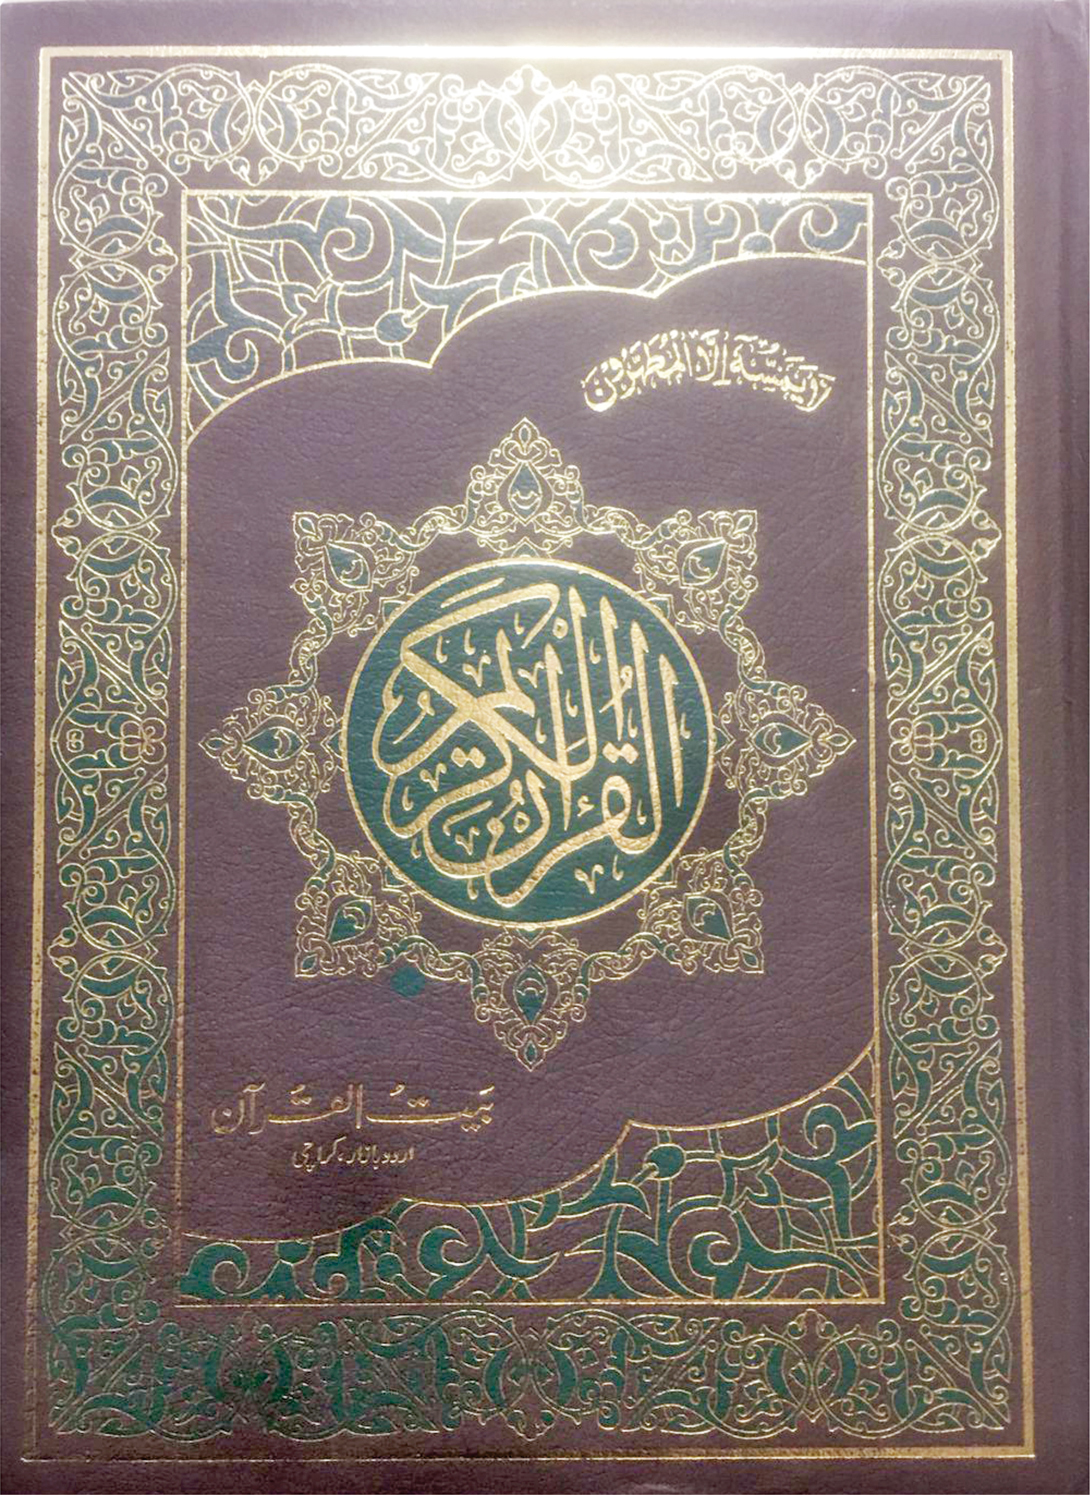 لَا يَمَسُّهٗٓ اِلَّا الْمُطَهَّرُوْنَ
الْقُرْآنُ الْكَرِيْم
بَيتُ القُرآن
اردو بازار، کراچی